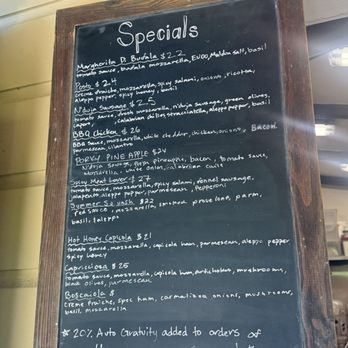 Specials
Margherita Di Bufala $22
tomato sauce, bufala mozzarella, EVOO, Maldon salt, basil
$24
creme fraiche, mozzarella, spicy salami, onions, ricotta,
aleppo pepper, spicy honey, basil
N'duja Sausage $25
tomato sauce, fresh mozzarella, N'duja sausage, green olives,
capers, calabrian chilies, aleppo pepper, basil
BBQ Chicken $26
BBQ sauce, mozzarella, white cheddar, chicken, onions, Bacon
parmesan, cilantro
PORKY PINEAPPLE $24
N'duja Sausage, pineapple, bacon, tomato sauce,
mozzarella, white onion, calabrian
Spicy Meat Lover $27
tomato sauce, mozzarella, spicy salami, fennel sausage,
jalapeño, aleppo pepper, parmesan, Pepperoni
Summer $22
red sauce, mozzarella, prosc, parm,
basil,
Hot Honey Capicola $21
tomato sauce, mozzarella, capicola ham, parmesan, aleppo pepper
spicy honey
Capricciosa $25
tomato sauce, mozzarella, capicola ham, artichokes, mushrooms,
black olives, parmesan
Boscaiola $
creme fraiche, speck ham, onions, mushrooms,
basil, mozzarella
* 20% Auto Gratuity added to orders of